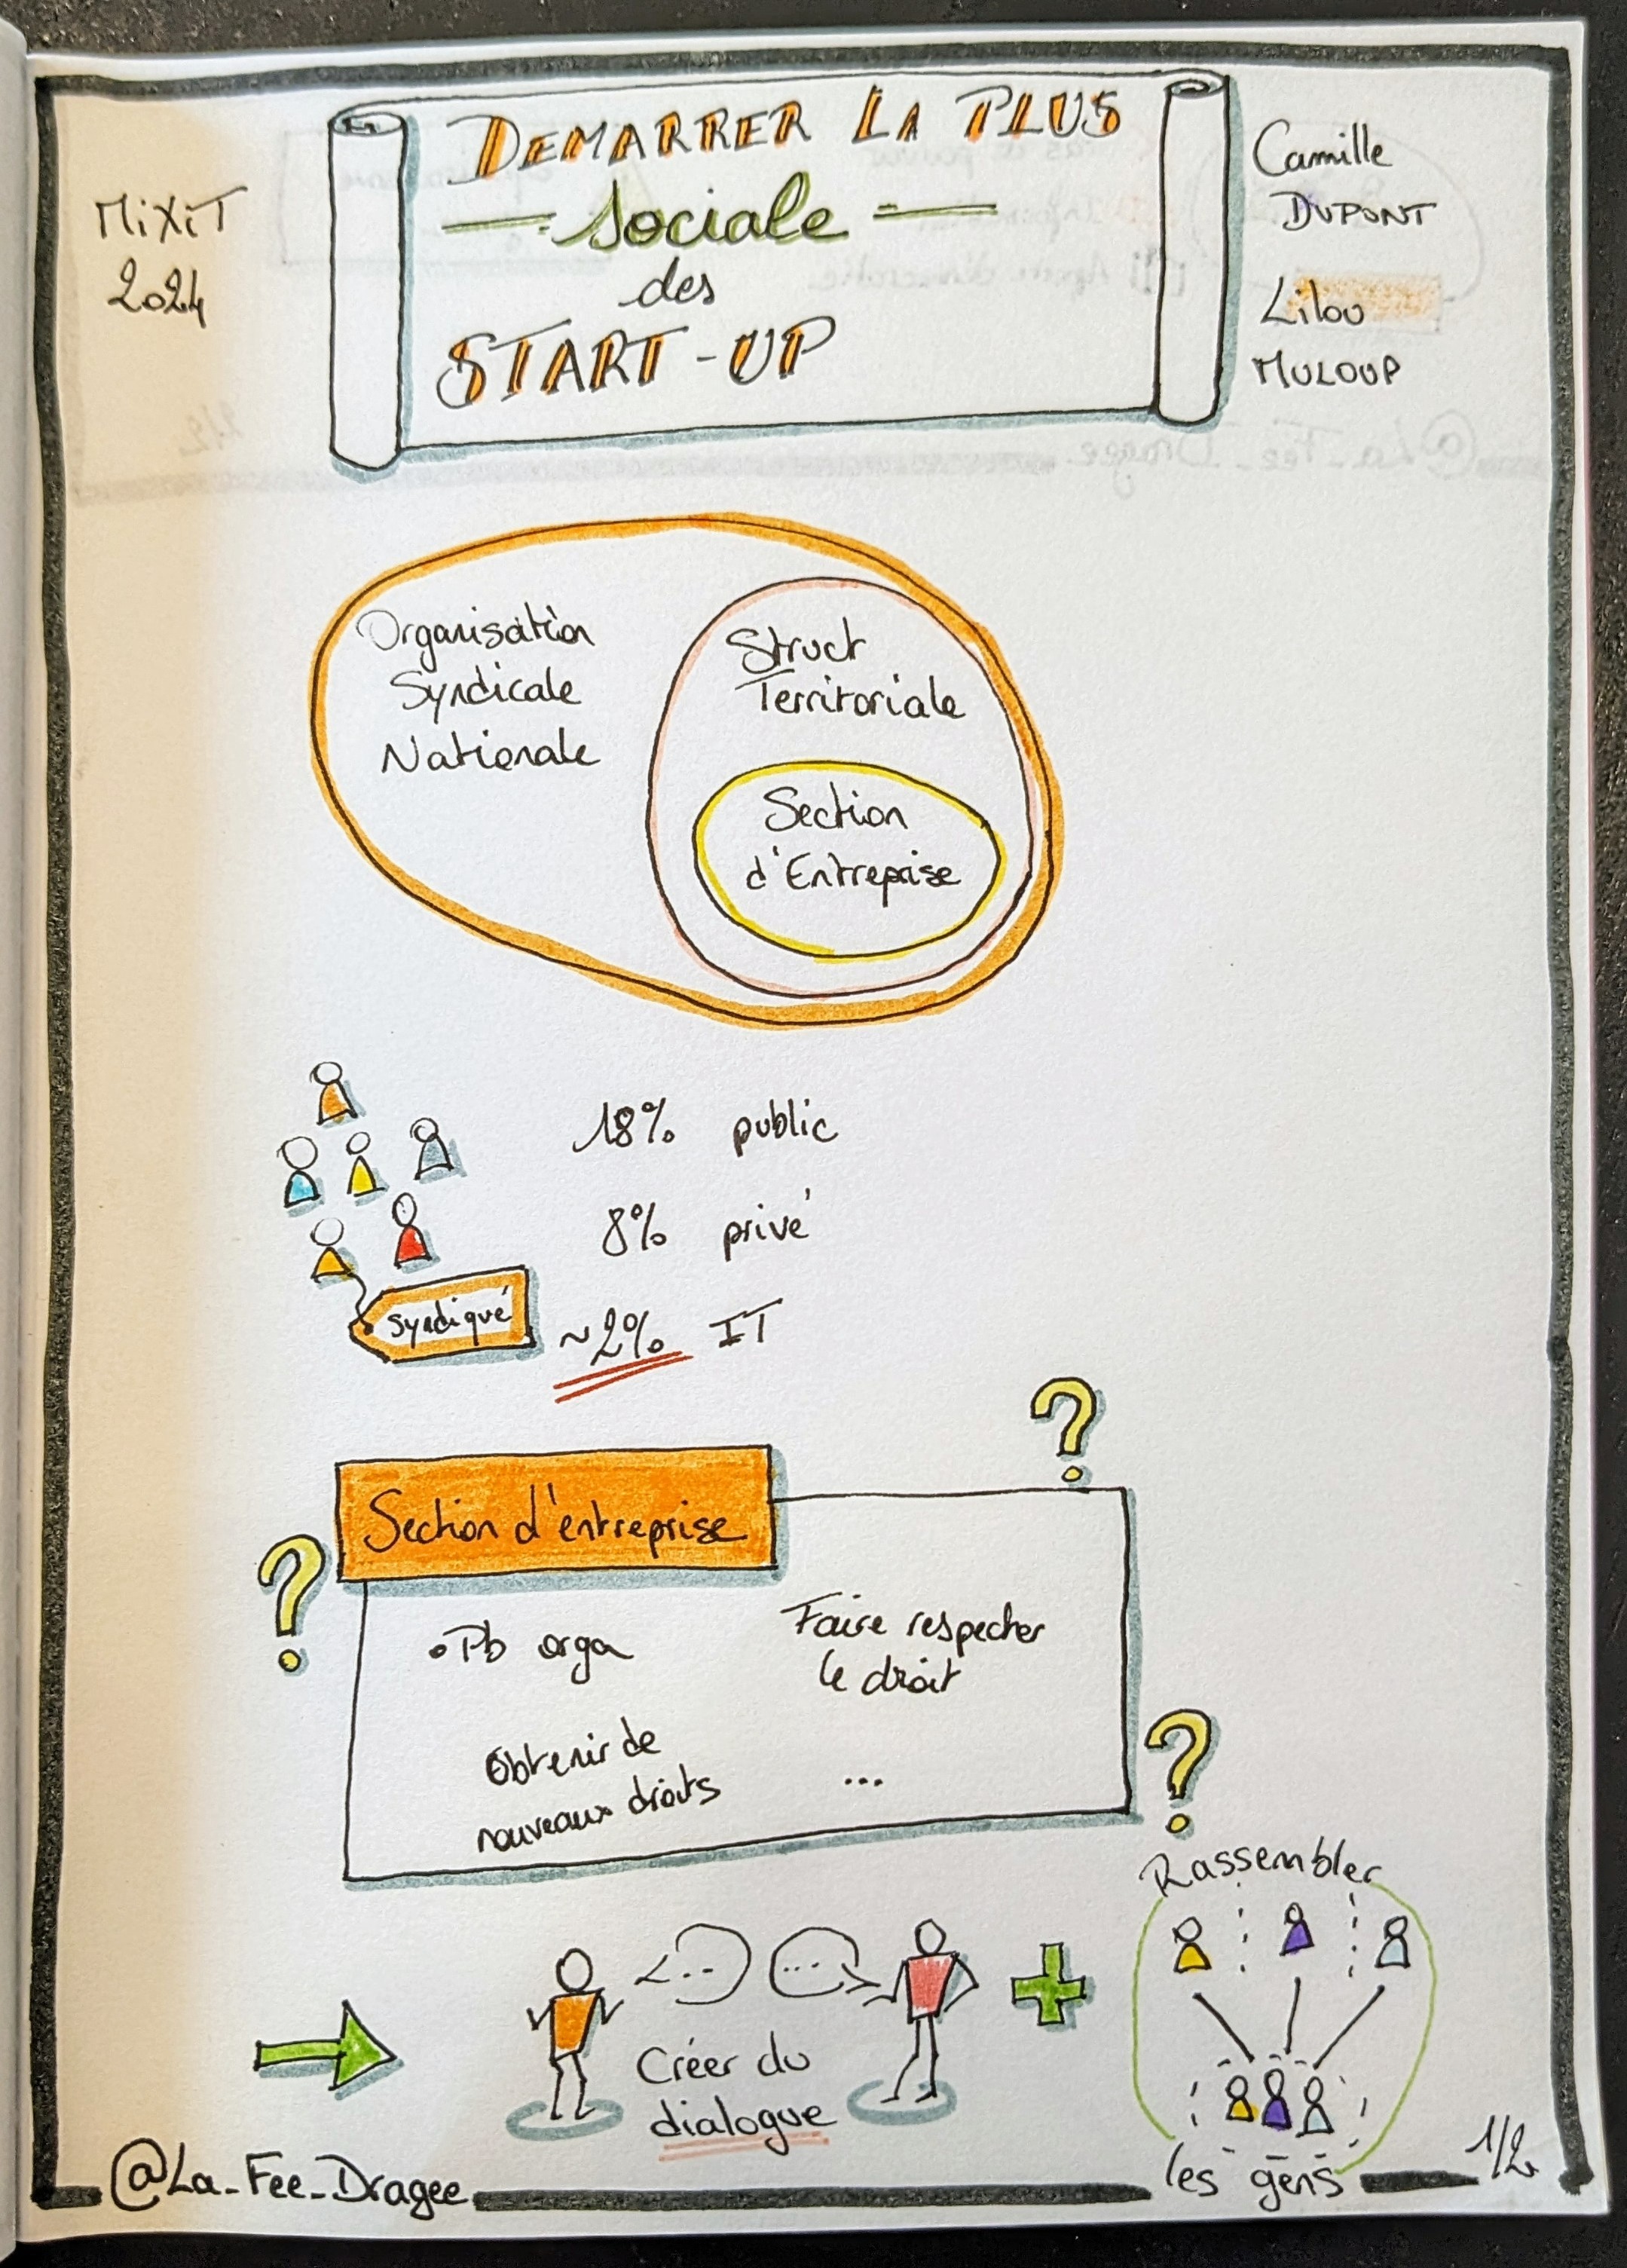 MiXiT
2024
DEMARRER LA PLUS
sociale
des
START-UP
Camille
DUPONT
Lilou
MULOUP
Organisation
Syndicale
Nationale
Struct
Territoriale
Section
d'Entreprise
18% public
8% privé
syndiqué
~2% IT
?
Section d'entreprise
?
• Pb orga
Faire respecter
le droit
Obtenir de
nouveaux droits
...
?
Rassembler
...
...
Créer du
dialogue
les gens
@La_Fee_Dragee
1/2